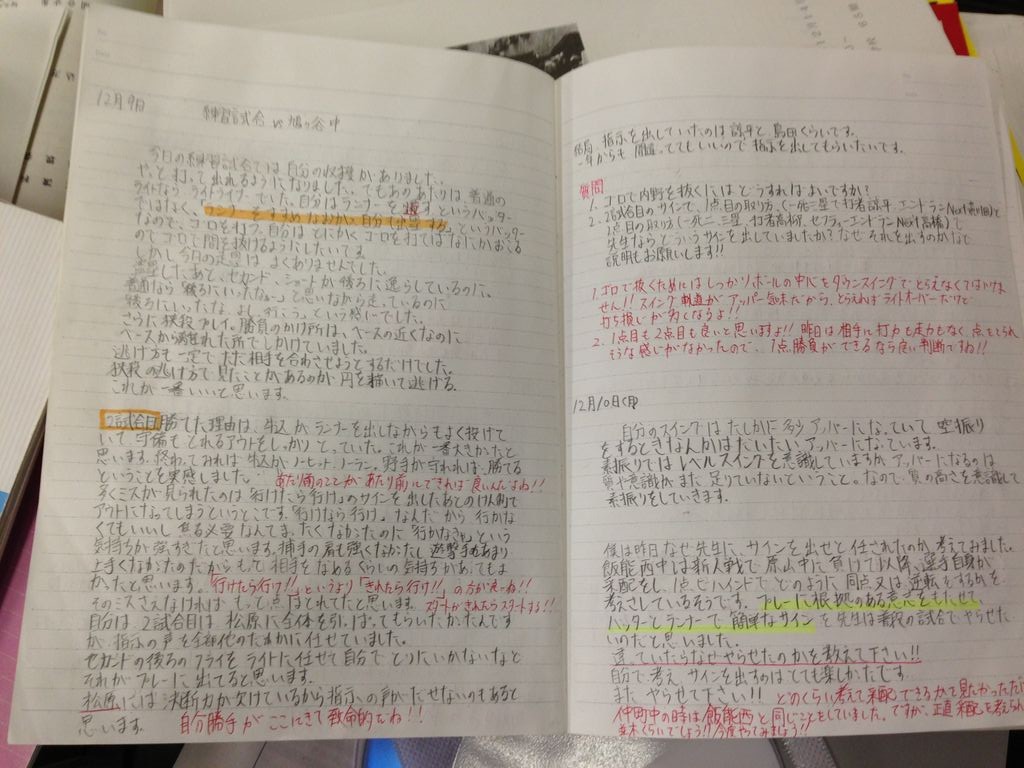 12月9日 練習試合 vs 鳩ヶ谷中
今日の練習試合では自分の収穫がありました。
やっと打って出れるようになりました。でもあのあたりは普通の
ライトなら、ライトライナーでした。自分はランナーを還すというバッター
ではなく。ランナーをすすめなおかつ自分で出塁するというバッター
なので、ゴロを打つ。自分はとにかくゴロを打てばなにかおこる
のでゴロで間を抜けるようにしたいです。
しかし今日の走塁はよくありませんでした。
盗塁したあと、セカンド、ショートが後ろに逸らしているのに。
普通なら「後ろにいったなぁ〜」と思いながら走っているのに
後ろにいったな、よし、行こう。という感じでした。
さらに挟殺プレイ。勝負のかけ所は、ベースの近くなのに
ベースから離れた所でしかけていました。
逃げ方も一定でただ相手を合わせさせようとするだけでした。
挟殺の逃げ方で見たことがあるのが円を描いて逃げる。
これが一番いいと思います。
2試合目勝てた理由は、牛込がランナーを出しながらもよく投げて
いて、守備もとれるアウトをしっかりとっていた。これが一番大きかったと
思います。終わってみれば牛込がノーヒットノーラン。野手が守れれば、勝てる
ということを実感しました。 あたり前のことがあたり前にできれば良いんだよね!!
多くミスが見られたのは「行けたら行け」のサインを出したあとの1,2塁間で
アウトになってしまうということです。「行けなら行け。なんだから行かな
くてもいいし焦る必要なんてまったくなかったのに「行かなきゃ」という
気持ちが強すぎたと思います。捕手の肩も強くなかったし遊撃手もあまり
上手くなかったのだからもっと相手をなめるくらいの気持ちがあってもよ
かったと思います。「行けたら行け!!」というより「きれたら行け!!」の方が良いね!!
そのミスさえなければもっと点はとれてたと思います。スタートがきれたらスタートする!!
自分は、2試合目は松原に全体を引っぱってもらいたかったんです
が指示の声を全部他の
セカンドの後ろのフライをライトに任せて自分でとりにいかないなど
それがプレーに出てると思います。
松原には決断力が欠けているから指示の声がだせないのもあると
思います。 自分勝手がここにきて致命的だね!!
結局、指示を出していたのは諒平と島田くらいです。
一年からも間違っててもいいので指示を出してもらいたいです。
質問
1. ゴロで内野を抜くにはどうすればよいですか?
2. 2試合目のサインで、1点目の取り方、(一死二三塁 打者諒平 エンドラン
2点目の取り方(一死二、三塁、打者高柳、セフティーエンドラン Next高橋)で
先生ならどういうサインを出していましたか?なぜそれを出すのかなど
説明もお願いします!!
1. ゴロで抜くためにはしっかりボールの中心をダウンスイングでとらえなくてはいけま
せん!!スイング軌道がアッパー気味だから、とらえればライトオーバーだけど
打ち損じが多くなるよ!!
2. 1点目も2点目も良いと思いますよ!!昨日は相手に打力も走力もなく、点をとられ
そうな感じがなかったので、1点勝負ができるなら良い判断ですね!!
12月10日(月)
自分のスイングはたしかに多少アッパーになっていて空振り
をするときなんかはだいたいアッパーになっています。
素振りではレベルスイングを意識していますがアッパーになるのは
質や意識がまだ足りていないということ。なので、質の高さを意識して
素振りをしていきます。
僕は昨日なぜ先生に、サインを出せと任されたのか考えてみました。
飯能西中は新人戦で原山中に負けて以降、選手自身が
采配をし、1点ビハインドでどのように同点又は逆転をするかを
考えさしているそうです。プレーに根拠のある意志をもたせて、
バッターとランナーで簡単なサインを先生は普段の試合でやらせた
いのだと思いました。
違っていたらなぜやらせたのかを教えて下さい!!
自分で考えサインを出すのはとても楽しかったです。
またやらせて下さい!! どのくらい考えて采配できるか見たかっただけ
仲町中の時は飯能西と同じことをしていました。ですが、正直采配を考えられ
るくらいでしょう!!今度やってみましょう!!